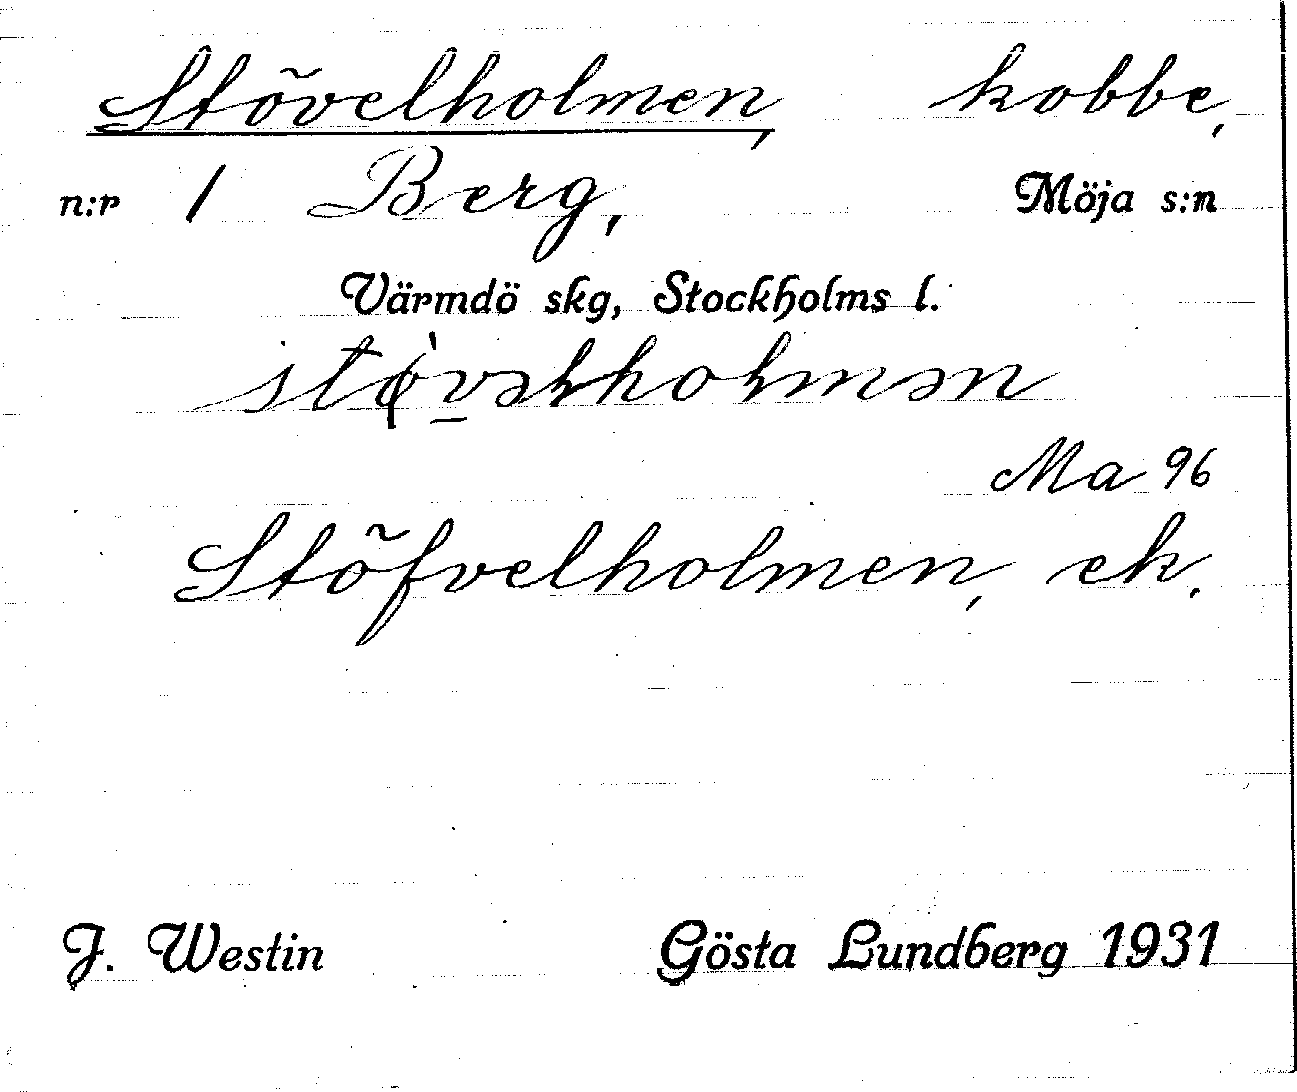 Stövelholmen, kobbe,
n:r 1 Berg, Möja s:n
Värmdö skg, Stockholms l.
Ma 96
Stöfvelholmen, ek.
J. Westin Gösta Lundberg 1931